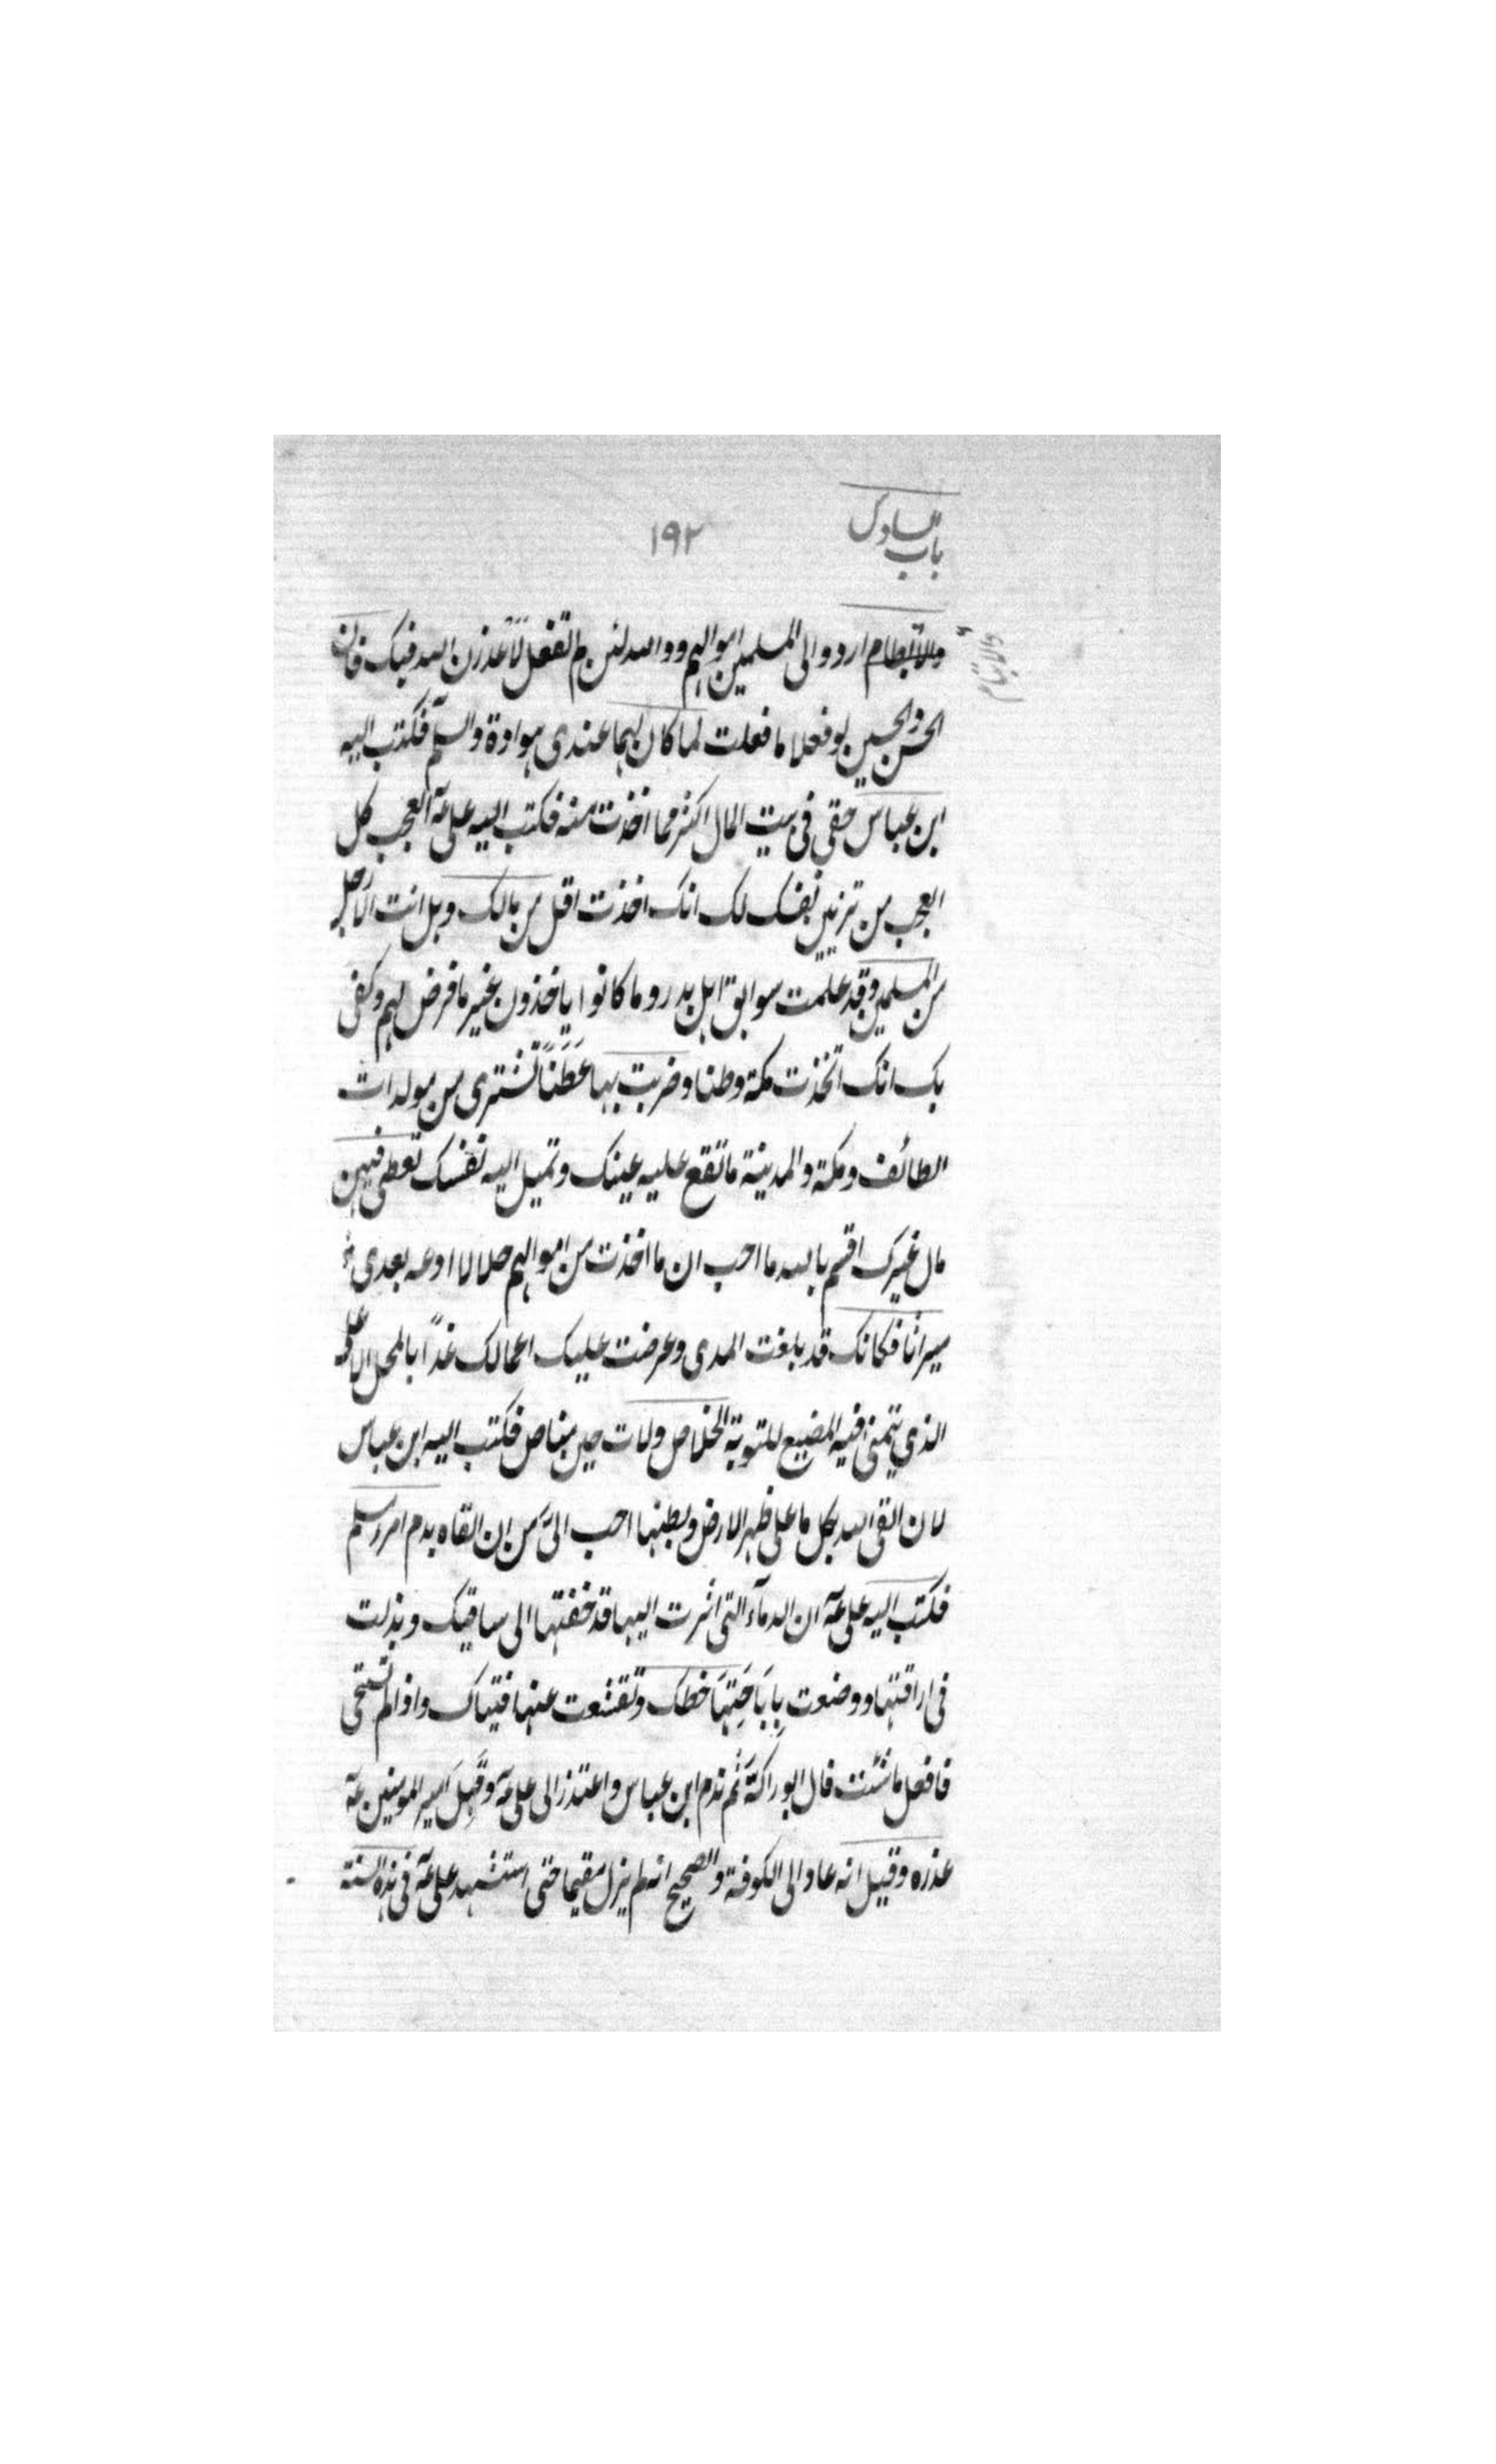 باب السادس
١٩٢
والايتام
والأيطام اردد الى المسلمين اموالهم ووالله لئن لم تفعل لأعذرن الله فيك فان
الحسن والحسين لو فعلا ما فعلت لما كان لهما عندى هوادة والسلم فكتب اليه
ابن عباس حقى فى بيت المال اكثر مما اخذت منه فكتب اليه على عه العجب كل
العجب من تزيين نفسك لك انك اخذت اقل من مالك وهل انت الا رجل
من المسلمين وقد علمت سوابق اهل بدر وما كانوا ياخذون غير ما فرض لهم وكفى
بك انك اتخذت مكة وطنا وضربت بها عَطَنًا تشترى من مولدات
الطائف ومكة والمدينة ما تقع عليه عينك وتميل اليه نفسك تعطى فيهن
مال غيرك اقسم بالله ما احب ان ما اخذت من اموالهم حلالا ادعه بعدى
ميراثا فكانك قد بلغت المدى وعرضت عليك اعمالك غدًا بالمحل الاعلى
الذي يتمنى فيه المضيع للتوبة الخلاص ولات حين مناص فكتب اليه ابن عباس
لان القى الله بكل ما على ظهر الارض وبطنها احب الىّ من ان القاه بدم امرء مسلم
فكتب اليه على عه ان الدمآء التى اشرت اليها قد خضتها الى ساقيك وبذلت
فى اراقتها ووضعت بِابَاحَتِهَا خطك وتقشعت عنها فتياك واذا لم تستحى
فافعل ما شئت قال ابو راكة ثم ندم ابن عباس واعتذر الى على عه وقَبِلَ امير المومنين عه
عذره وقيل انه عاد الى الكوفة والصحيح انه لم يزل مقيما حتى استشهد على عه فى هذه السنة